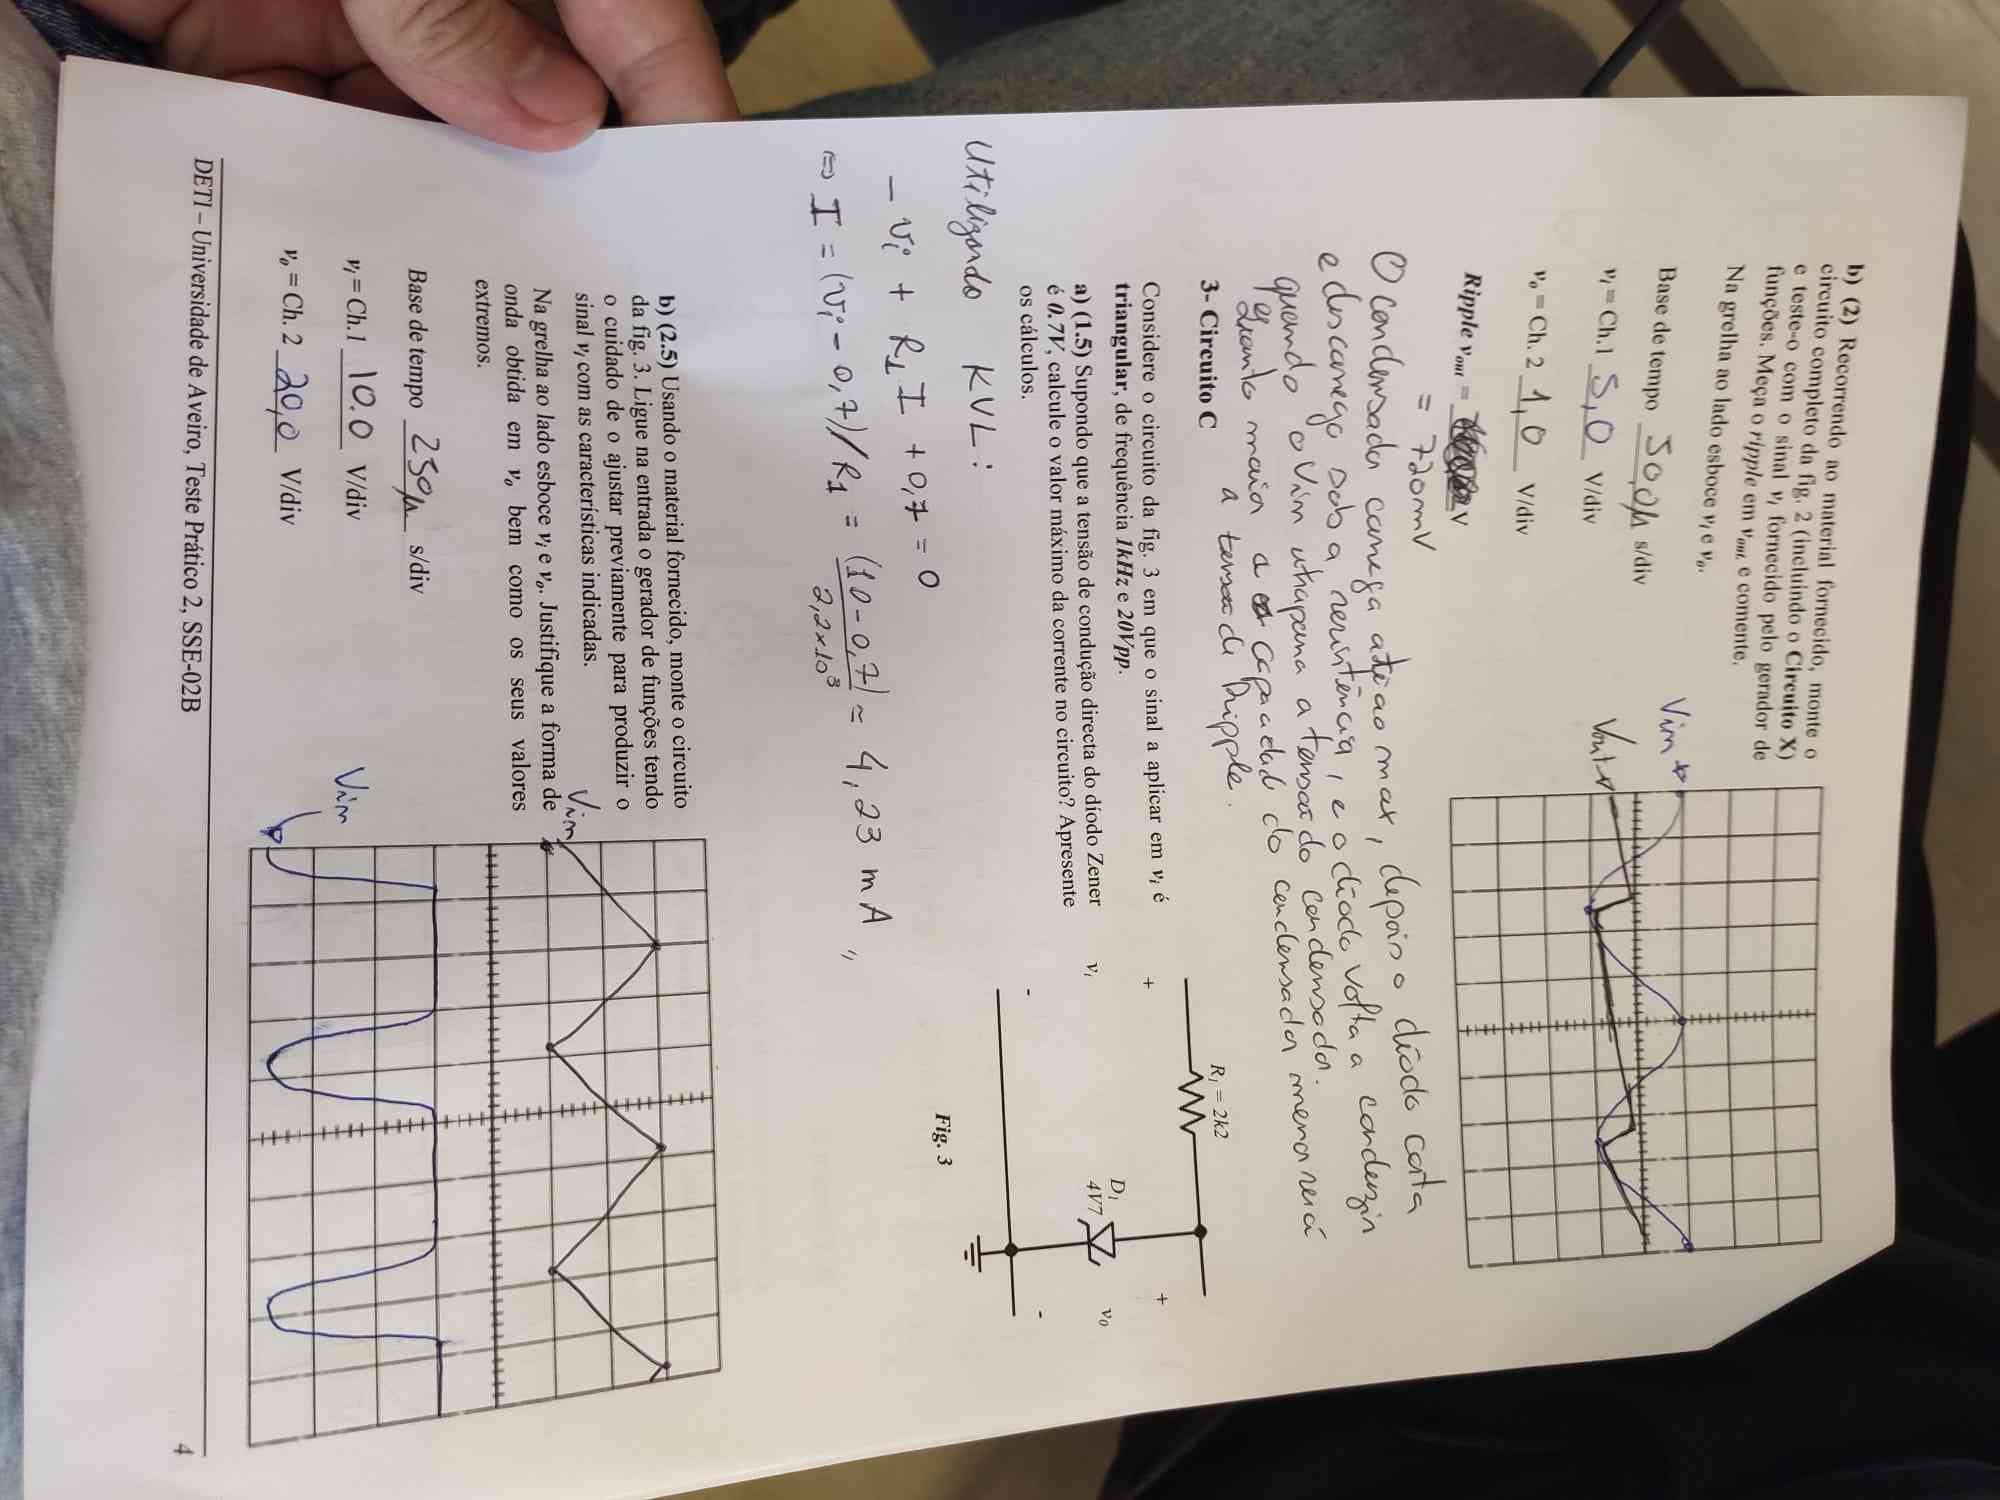 b) (2) Recorrendo ao material fornecido, monte o
circuito completo da fig. 2 (incluindo o Circuito X)
e teste-o com o sinal vi fornecido pelo gerador de
funções. Meça o ripple em vout. e comente.
Na grelha ao lado esboce vi e vo.
Vin
Base de tempo 50,0µ s/div
Vout
vi = Ch.1 5,0 V/div
vo = Ch. 2 1,0 V/div
Ripple vout = V
= 720mV
O condensador carrega até ao max, depois o díodo corta
e descarrega sob a resistência, e o díodo volta a conduzir
quando o Vin ultrapassa a tensão do condensador.
Quanto maior a capacidade do condensador menor será
a tensão de Ripple.
3- Circuito C
R1 = 2k2
Considere o circuito da fig. 3 em que o sinal a aplicar em vi é
triangular, de frequência 1kHz e 20Vpp.
a) (1.5) Supondo que a tensão de condução directa do díodo Zener
é 0.7V, calcule o valor máximo da corrente no circuito? Apresente
os cálculos.
+
+
vi
D1
4V7
v0
-
-
Fig. 3
Utilizando KVL:
- vi + R1 I + 0,7 = 0
⇔ I = (vi - 0,7)/R1 = (10-0,7)/2,2×10³ ≃ 4,23 mA //
b) (2.5) Usando o material fornecido, monte o circuito
da fig. 3. Ligue na entrada o gerador de funções tendo
o cuidado de o ajustar previamente para produzir o
sinal vi com as características indicadas.
Vin
Na grelha ao lado esboce vi e vo. Justifique a forma de
onda obtida em vo bem como os seus valores
extremos.
Base de tempo 250µ s/div
vi = Ch.1 10.0 V/div
Vin
vo = Ch. 2 20,0 V/div
DETI – Universidade de Aveiro, Teste Prático 2, SSE-02B
4